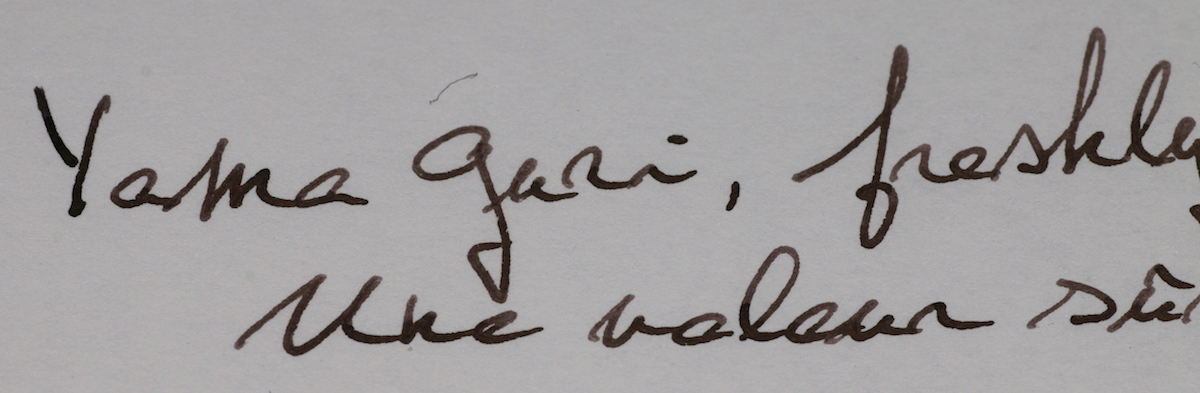 Yama Guri, freshly
Une valeur sû